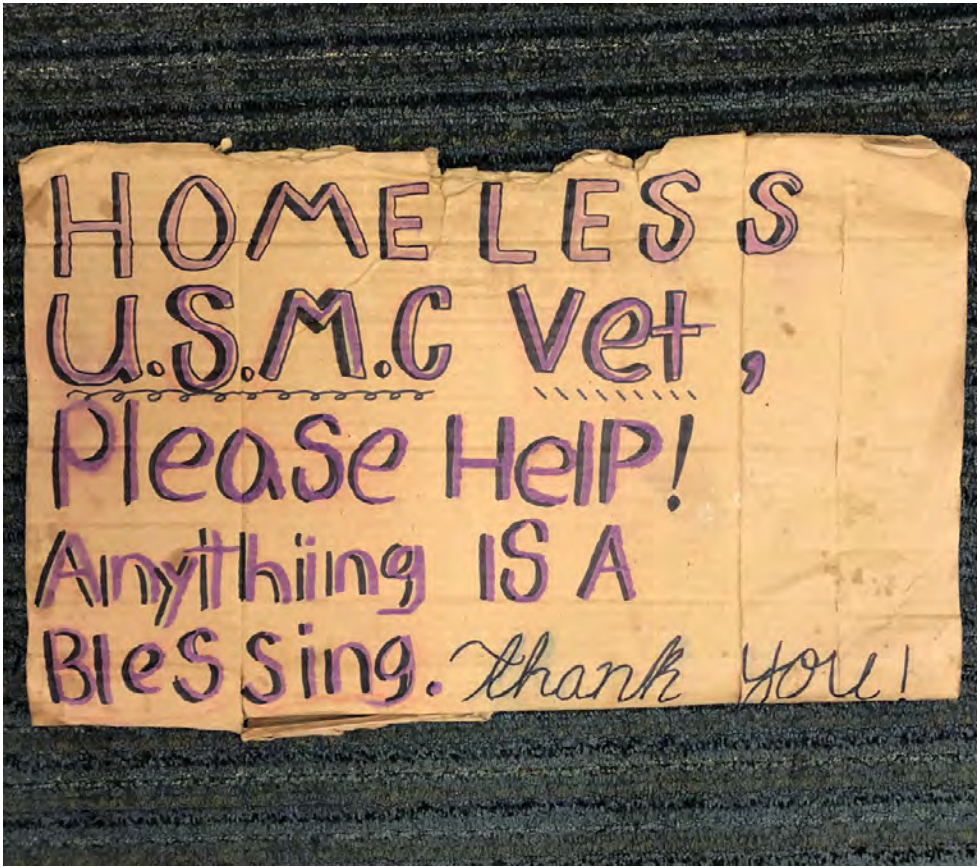 HOMELESS
U.S.M.C Vet,
Please HelP!
Anything IS A
Blessing. Thank you!